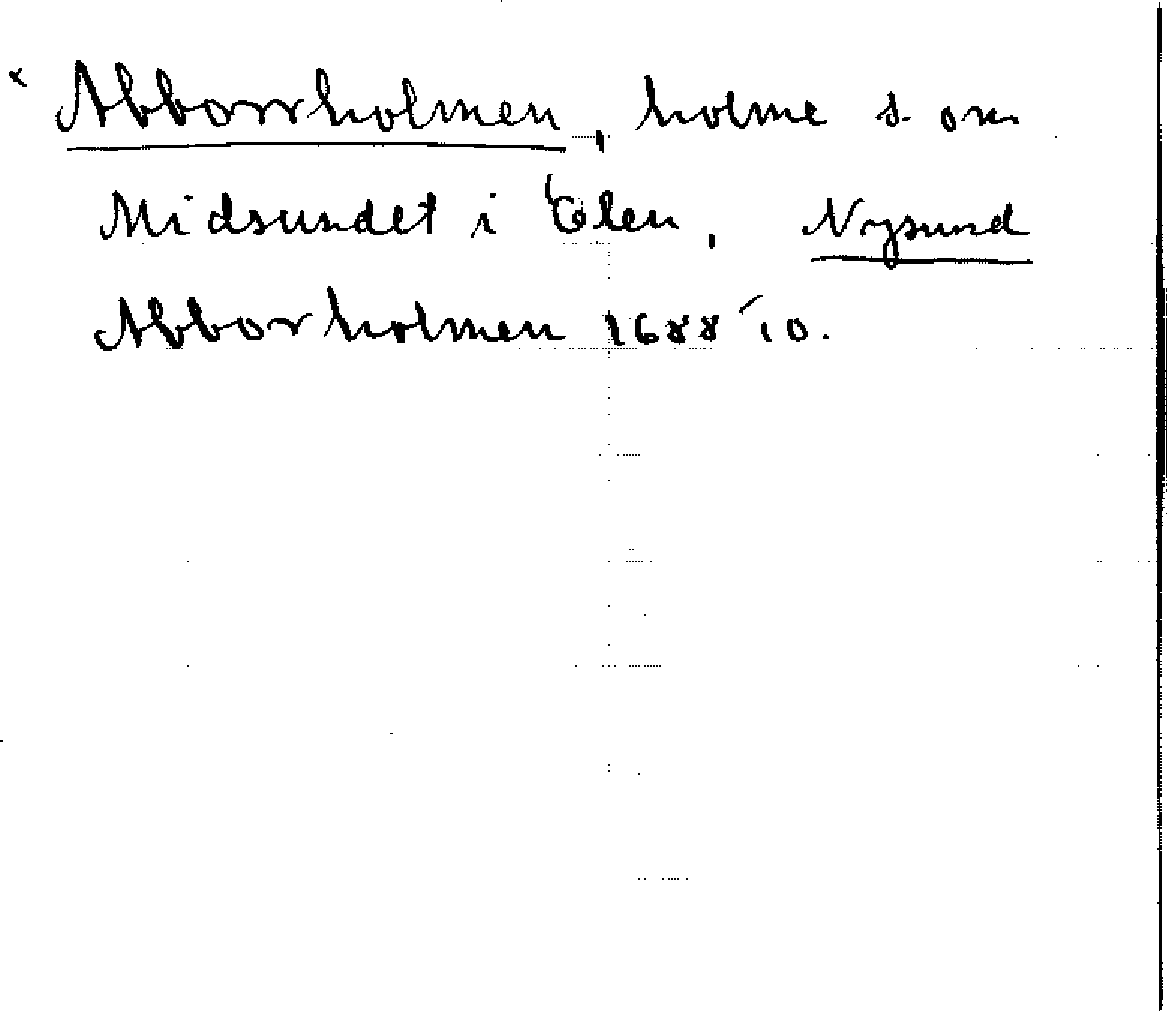 × Abborrholmen, holme s. om
Midsundet i Ölen, Nysund
Abborholmen 1688 10.